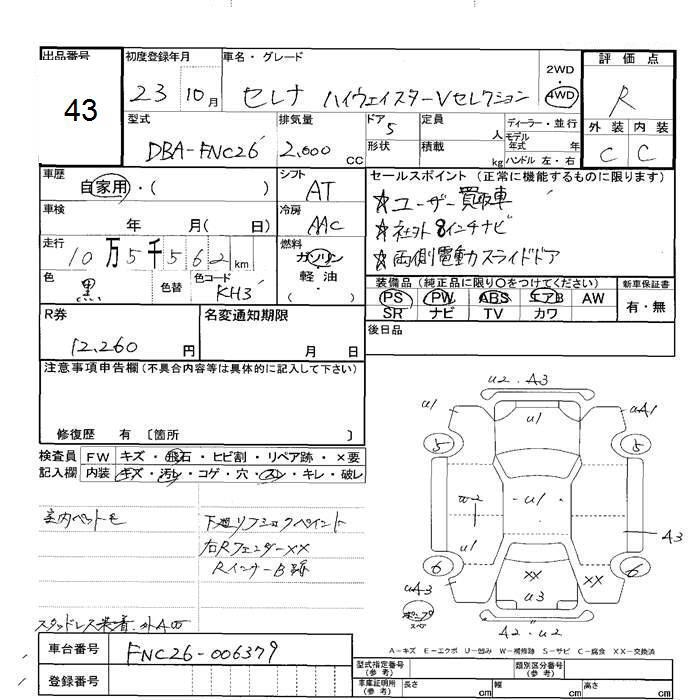 出品番号 初度登録年月 車名・グレード 評価点
43 23 10月 セレナ ハイウェイスターVセレクション 2WD・4WD R
型式 排気量 ドア 定員 ディーラー・並行 外装 内装
DBA-FNC26 2,000 CC 5 人 モデル年式 年 C C
形状 積載 kg ハンドル 左・右
車歴 自家用・( ) シフト AT セールスポイント (正常に機能するものに限ります)
車検 年 月( 日) 冷房 AAC ☆ユーザー買取車
☆社外8インチナビ
走行 10万5千562km 燃料 ガソリン 軽油 ( ) ☆両側電動スライドドア
色 黒 色替 色コード KH3
装備品 (純正品に限り〇をつけてください) 新車保証書
PS PW ABS エアB AW 有・無
SR ナビ TV カワ
R券 12,260 円 名変通知期限 月 日 後日品
注意事項申告欄 (不具合内容等は具体的に記入して下さい)
修復歴 有 〔箇所 〕
検査員記入欄 FW キズ・飛石・ヒビ割・リペア跡・×要
内装 キズ・汚レ・コゲ・穴・スレ・キレ・破レ
室内ペットモ 下廻リフショックペイント
右Rフェンダーxx
Rインナー
u2・A3
u1 u1 uA1
5 5
w2 u1 A3
u1
6 xx xx 6
uA3 u3
A2・u2
車台番号 FNC26-006379
登録番号
A-キズ E-エクボ U-凹み W-補修跡 S-サビ C-腐食 XX-交換済
型式指定番号(参考) 類別区分番号(参考)
車庫証明所(参考) 長さ cm 幅 cm 高さ cm